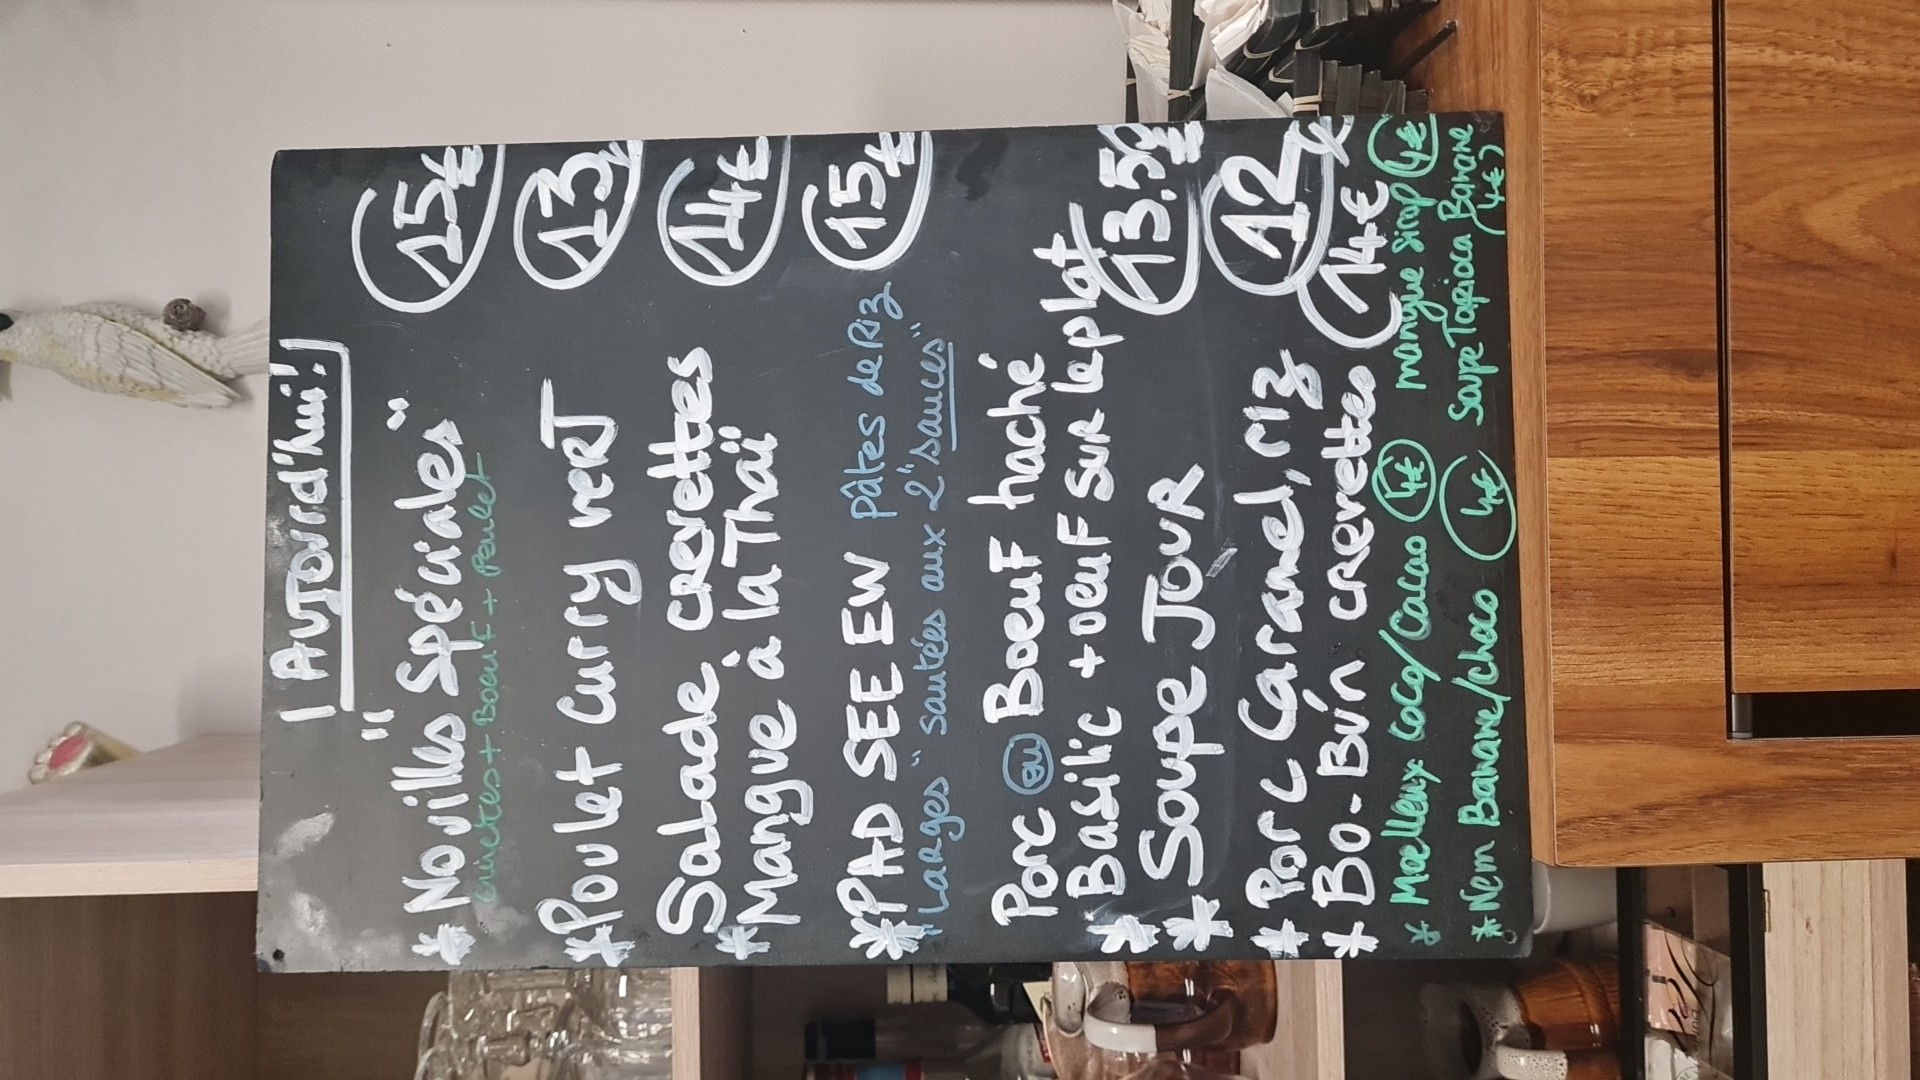 AUJOURd'hui!
* "Nouilles Spéciales" 15€
Crevettes + Boeuf + Poulet
* Poulet curry vert 13€
Salade crevettes
* Mangue à la Thaï 14€
* PAD SEE EW Pâtes de Riz 15€
"Larges" sautées aux 2 "sauces"
Porc ou Boeuf haché
* Basilic + oeuf sur le plat 13.5€
* Soupe Jour
* Porc Caramel, riz 12€
* Bo-Bún crevettes 14€
* Moelleux coco/cacao 4€ mangue sirop 4€
* Nem Banane/choco 4€ Soupe Tapioca Banane
(4€)